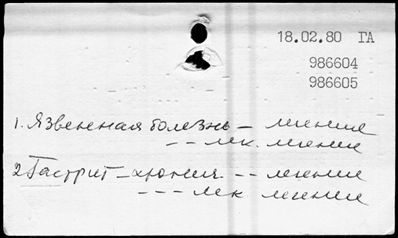 18.02.80 ГА
986604
986605
1. Язвенная болезнь – лечение
– – – лек. лечение
2. Гастрит – хронич. – – лечение
– – – лек лечение